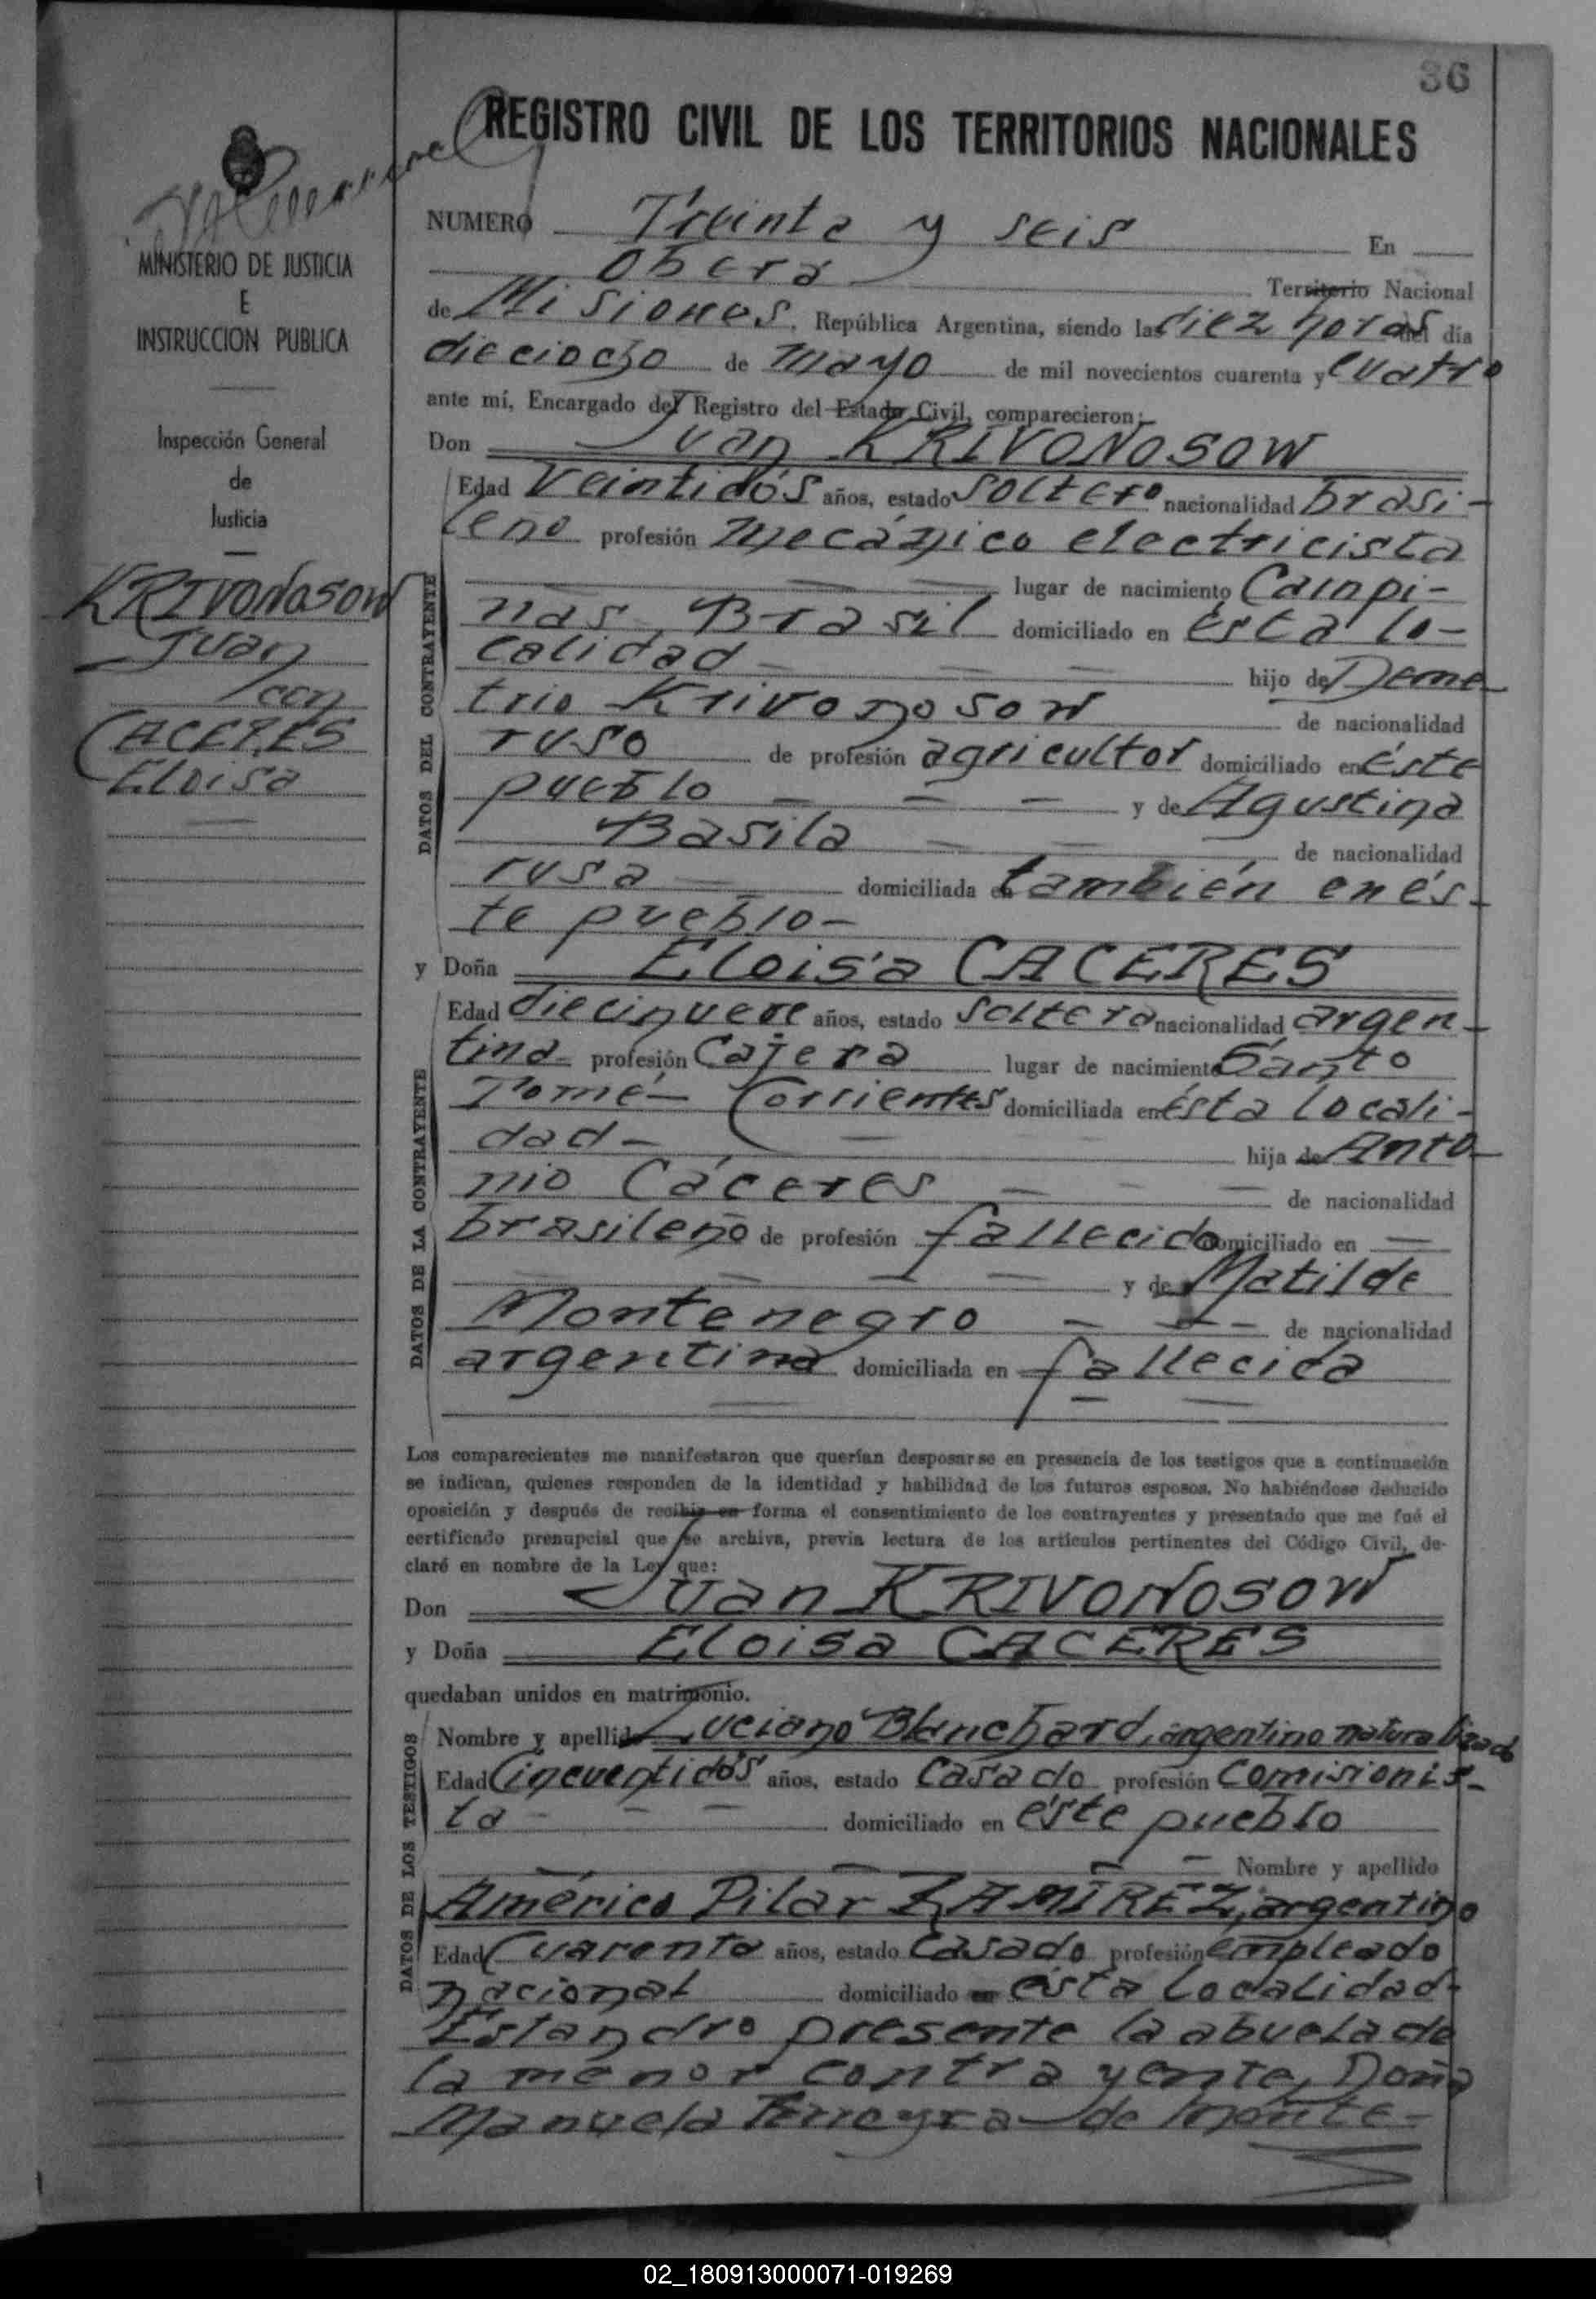 36
REGISTRO CIVIL DE LOS TERRITORIOS NACIONALES
MINISTERIO DE JUSTICIA
E
INSTRUCCION PUBLICA
Inspección General
de
Justicia
KRIVONOSOW
Juan
con
CACERES
Eloisa
NUMERO Treinta y seis En
Oberá Territorio Nacional
de Misiones, República Argentina, siendo las diez horas del día
dieciocho de mayo de mil novecientos cuarenta y cuatro
ante mí, Encargado del Registro del Estado Civil, comparecieron:
Don Juan KRIVONOSOW
DATOS DEL CONTRAYENTE
Edad veintidós años, estado soltero nacionalidad brasi-
leño profesión mecánico electricista
lugar de nacimiento Campi-
nas, Brasil domiciliado en ésta lo-
calidad hijo de Deme
trio Krivonosow de nacionalidad
ruso de profesión agricultor domiciliado en éste
pueblo y de Agustina
Basila de nacionalidad
rusa domiciliada en también en és-
te pueblo-
y Doña Eloisa CACERES
DATOS DE LA CONTRAYENTE
Edad diecinueve años, estado soltera nacionalidad argen-
tina profesión Cajera lugar de nacimiento Santo
Tomé- Corrientes domiciliada en ésta locali-
dad- hija de Anto
nio Cáceres de nacionalidad
brasileño de profesión fallecido domiciliado en
y de Matilde
Montenegro de nacionalidad
argentina domiciliada en fallecida
Los comparecientes me manifestaron que querían desposarse en presencia de los testigos que a continuación
se indican, quienes responden de la identidad y habilidad de los futuros esposos. No habiéndose deducido
oposición y después de recibir en forma el consentimiento de los contrayentes y presentado que me fué el
certificado prenupcial que se archiva, previa lectura de los artículos pertinentes del Código Civil, de-
claré en nombre de la Ley que:
Don Juan KRIVONOSOW
y Doña Eloisa CACERES
quedaban unidos en matrimonio.
DATOS DE LOS TESTIGOS
Nombre y apellido Luciano Blanchard, argentino naturalizado
Edad Cincuentidós años, estado casado profesión comisionis-
ta domiciliado en éste pueblo
Nombre y apellido
Américo Pilar RAMIREZ, argentino
Edad Cuarenta años, estado casado profesión empleado
nacional domiciliado en ésta localidad-
Estando presente la abuela de
la menor contrayente, Doña
Manuela Ferreyra de Monte-
02_180913000071-019269